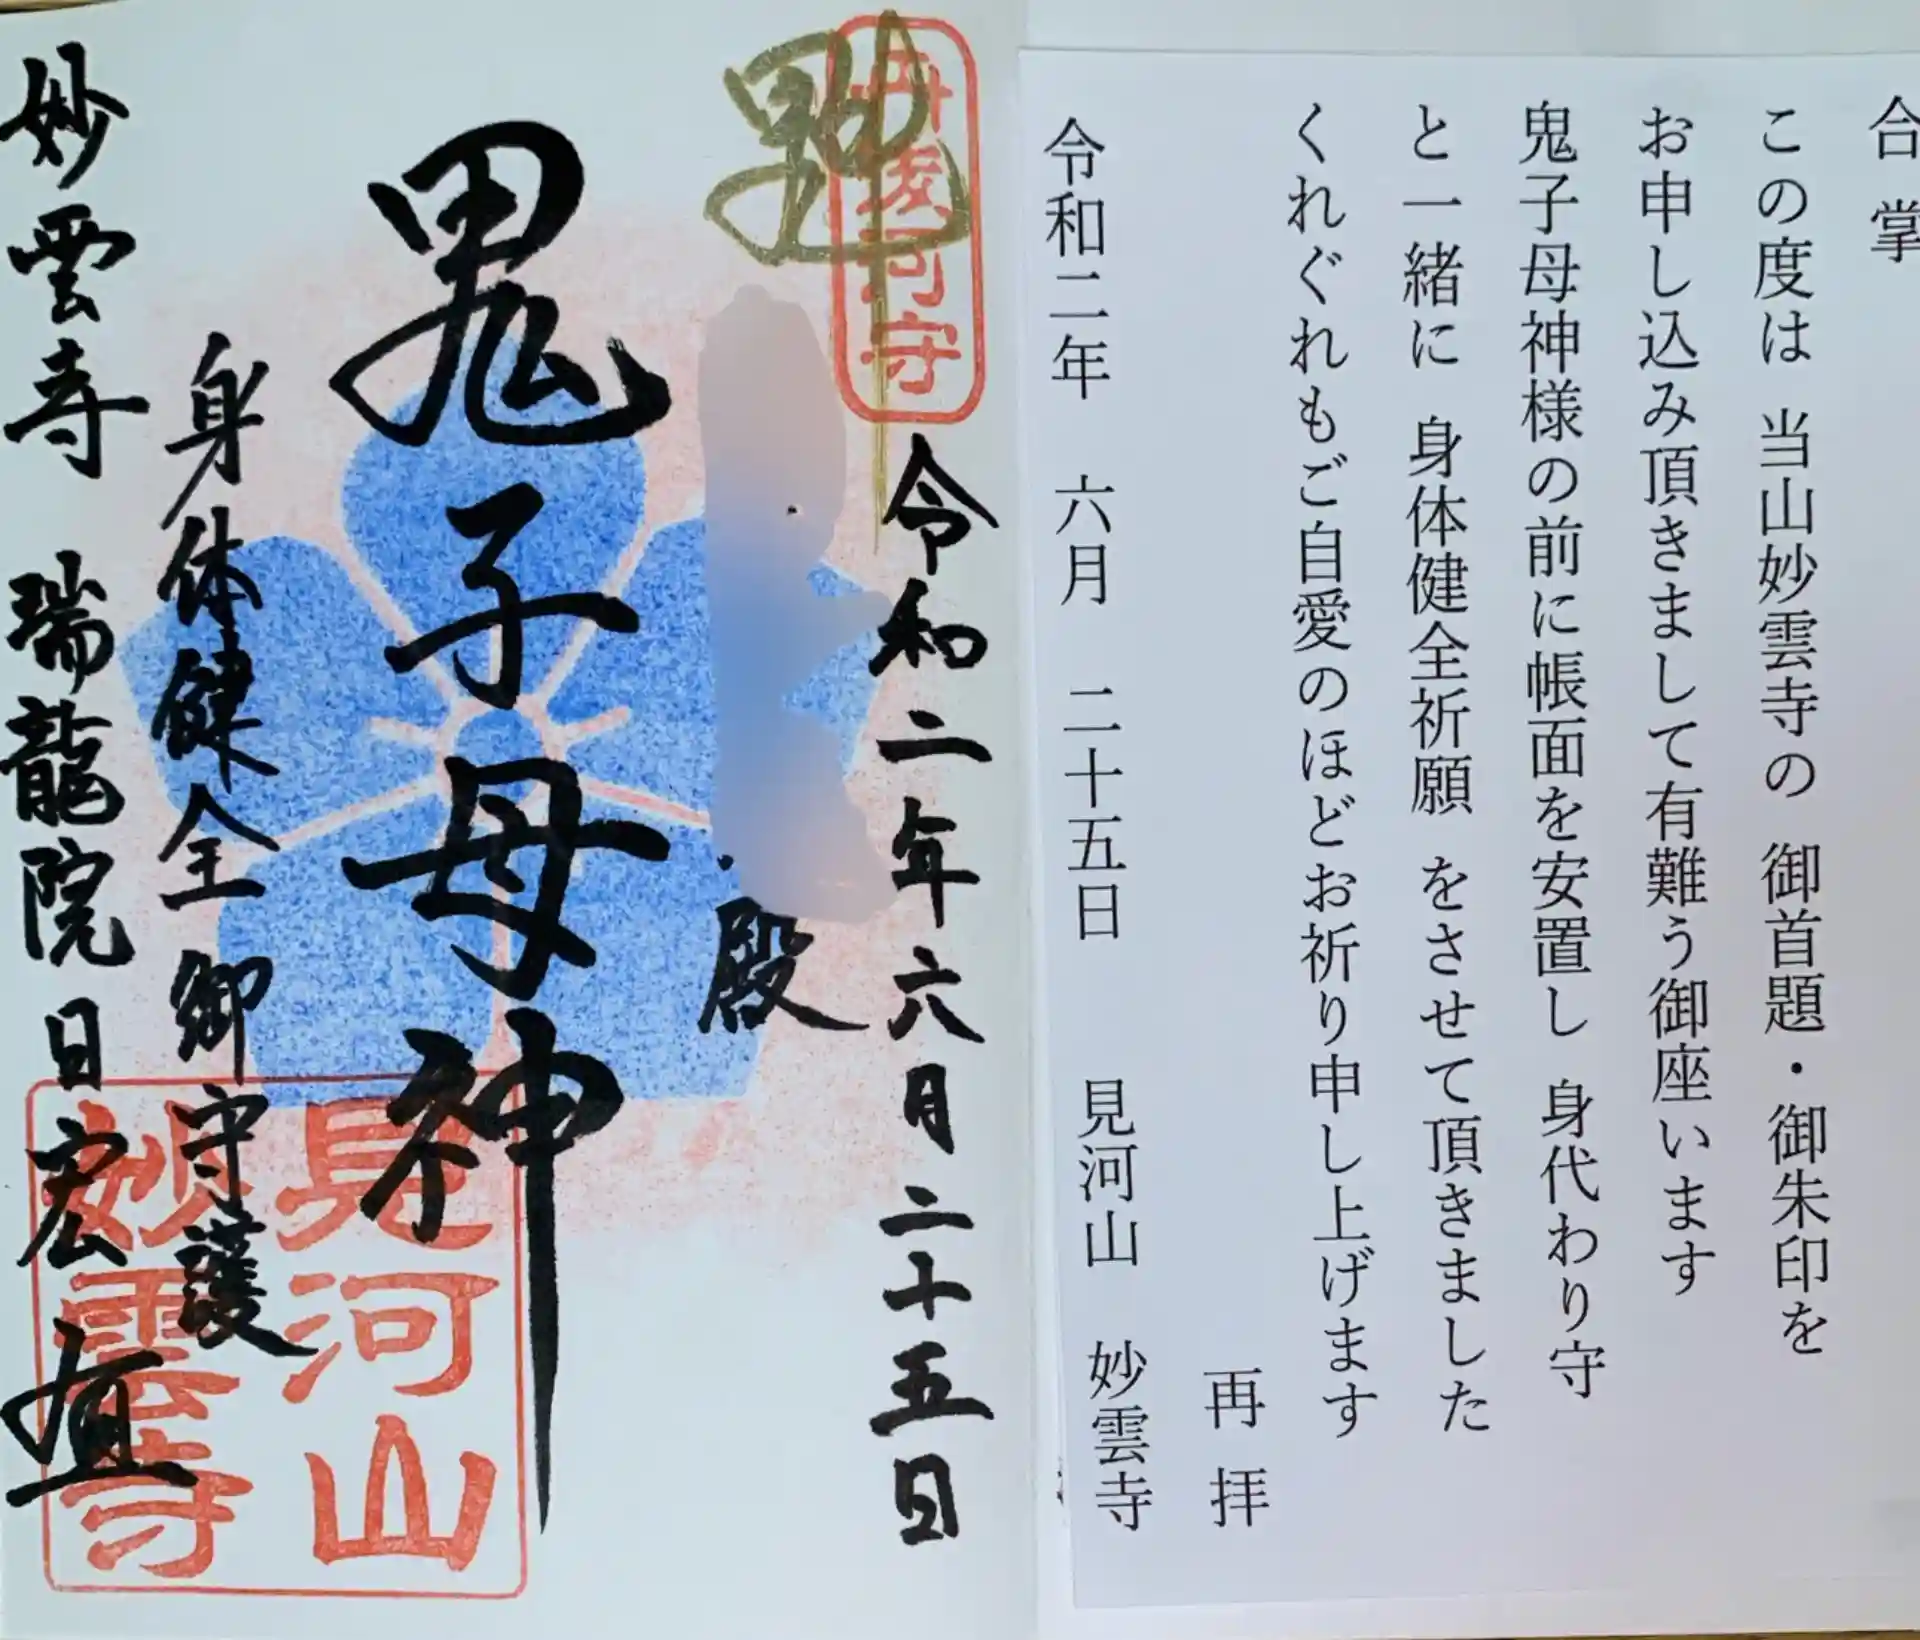 合掌
この度は 当山妙雲寺の 御首題・御朱印を
お申し込み頂きまして有難う御座います
鬼子母神様の前に帳面を安置し 身代わり守
と一緒に 身体健全祈願 をさせて頂きました
くれぐれもご自愛のほどお祈り申し上げます
再拝
令和二年 六月 二十五日 見河山 妙雲寺
令和二年六月二十五日
殿
鬼子母神
身体健全御守護
妙雲寺 瑞龍院日宏
見河山
妙雲寺